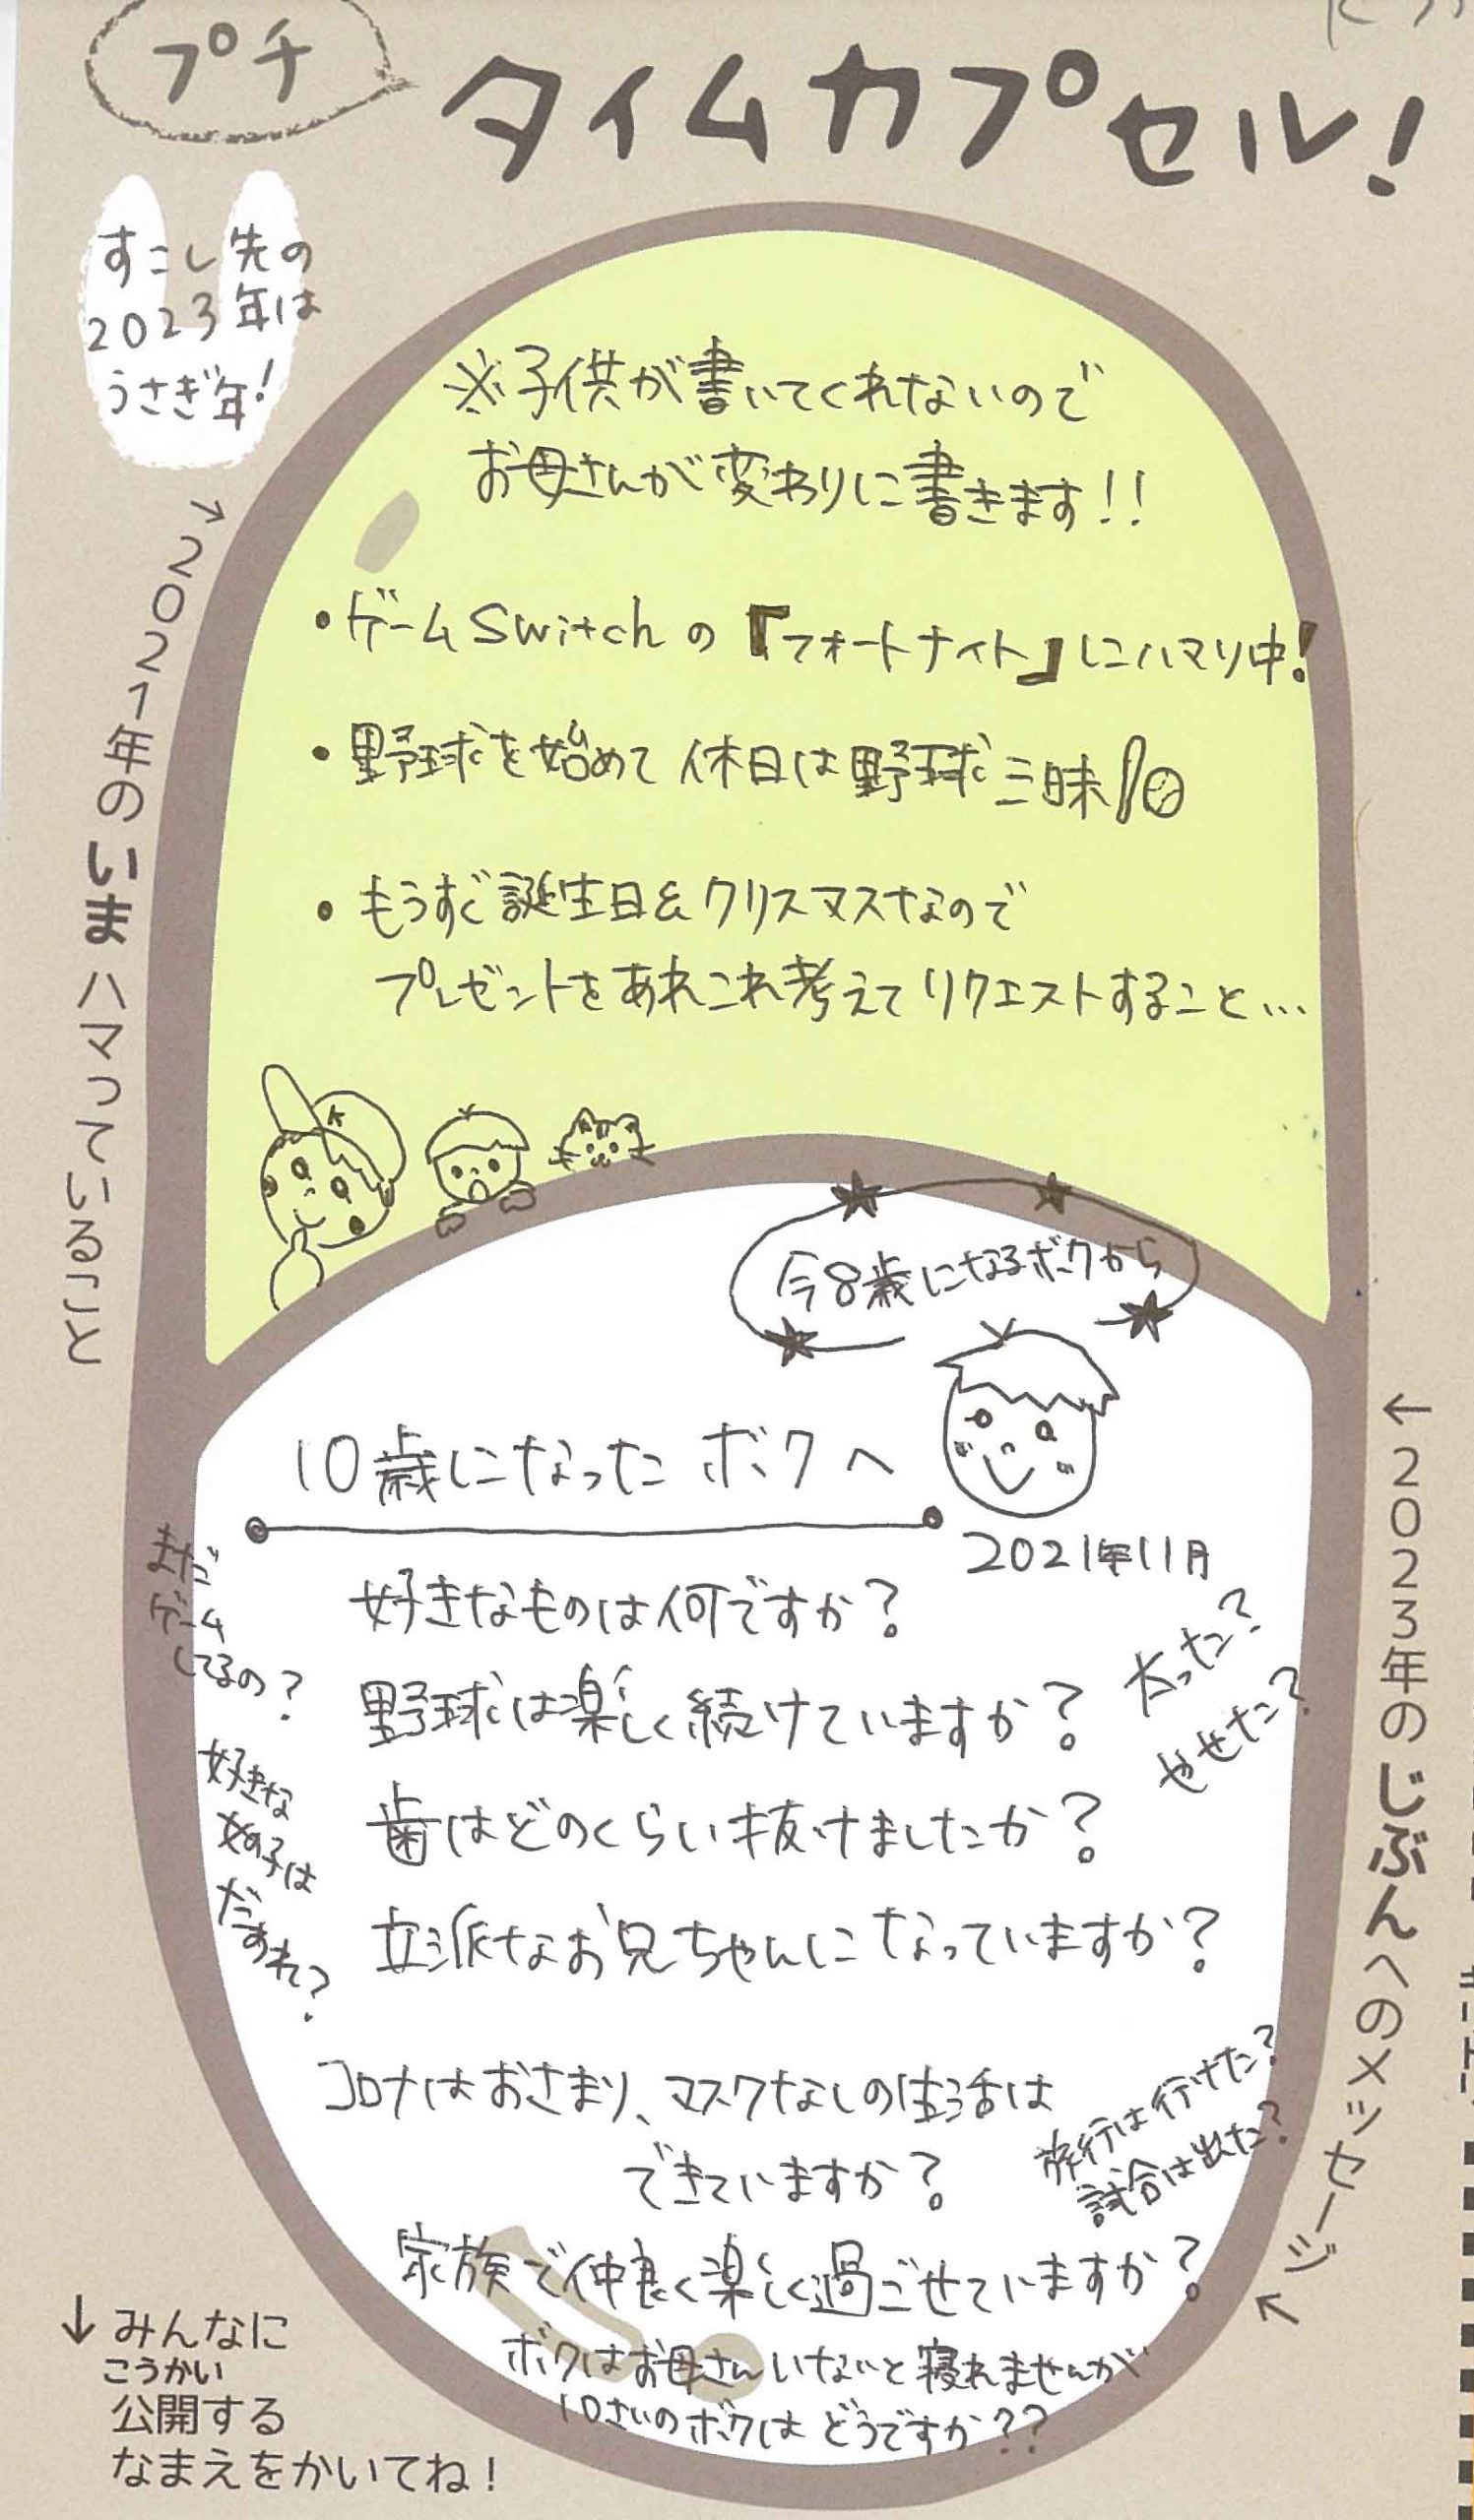 プチ
タイムカプセル!
すこし先の
2023年は
うさぎ年!
→2021年のいまハマっていること
※子供が書いてくれないので
お母さんが変わりに書きます!!
・ゲームSwitchの『フォートナイト』にハマり中!
・野球を始めて休日は野球三昧
・もうすぐ誕生日&クリスマスなので
プレゼントをあれこれ考えてリクエストすること…
K
今8歳になるボクから
10歳になったボクへ
2021年11月
←2023年のじぶんへのメッセージ
まだ
ゲーム
してるの?
好きなものは何ですか?
太った?
やせた?
野球は楽しく続けていますか?
好きな
女の子は
だあれ?
歯はどのくらい抜けましたか?
立派なお兄ちゃんになっていますか?
コロナはおさまり、マスクなしの生活は
できていますか?
旅行は行けた?
試合は出た?
家族で仲良く楽しく過ごせていますか?
ボクはお母さんいないと寝れませんが
10さいのボクはどうですか??
↓みんなに
こうかい
公開する
なまえをかいてね!